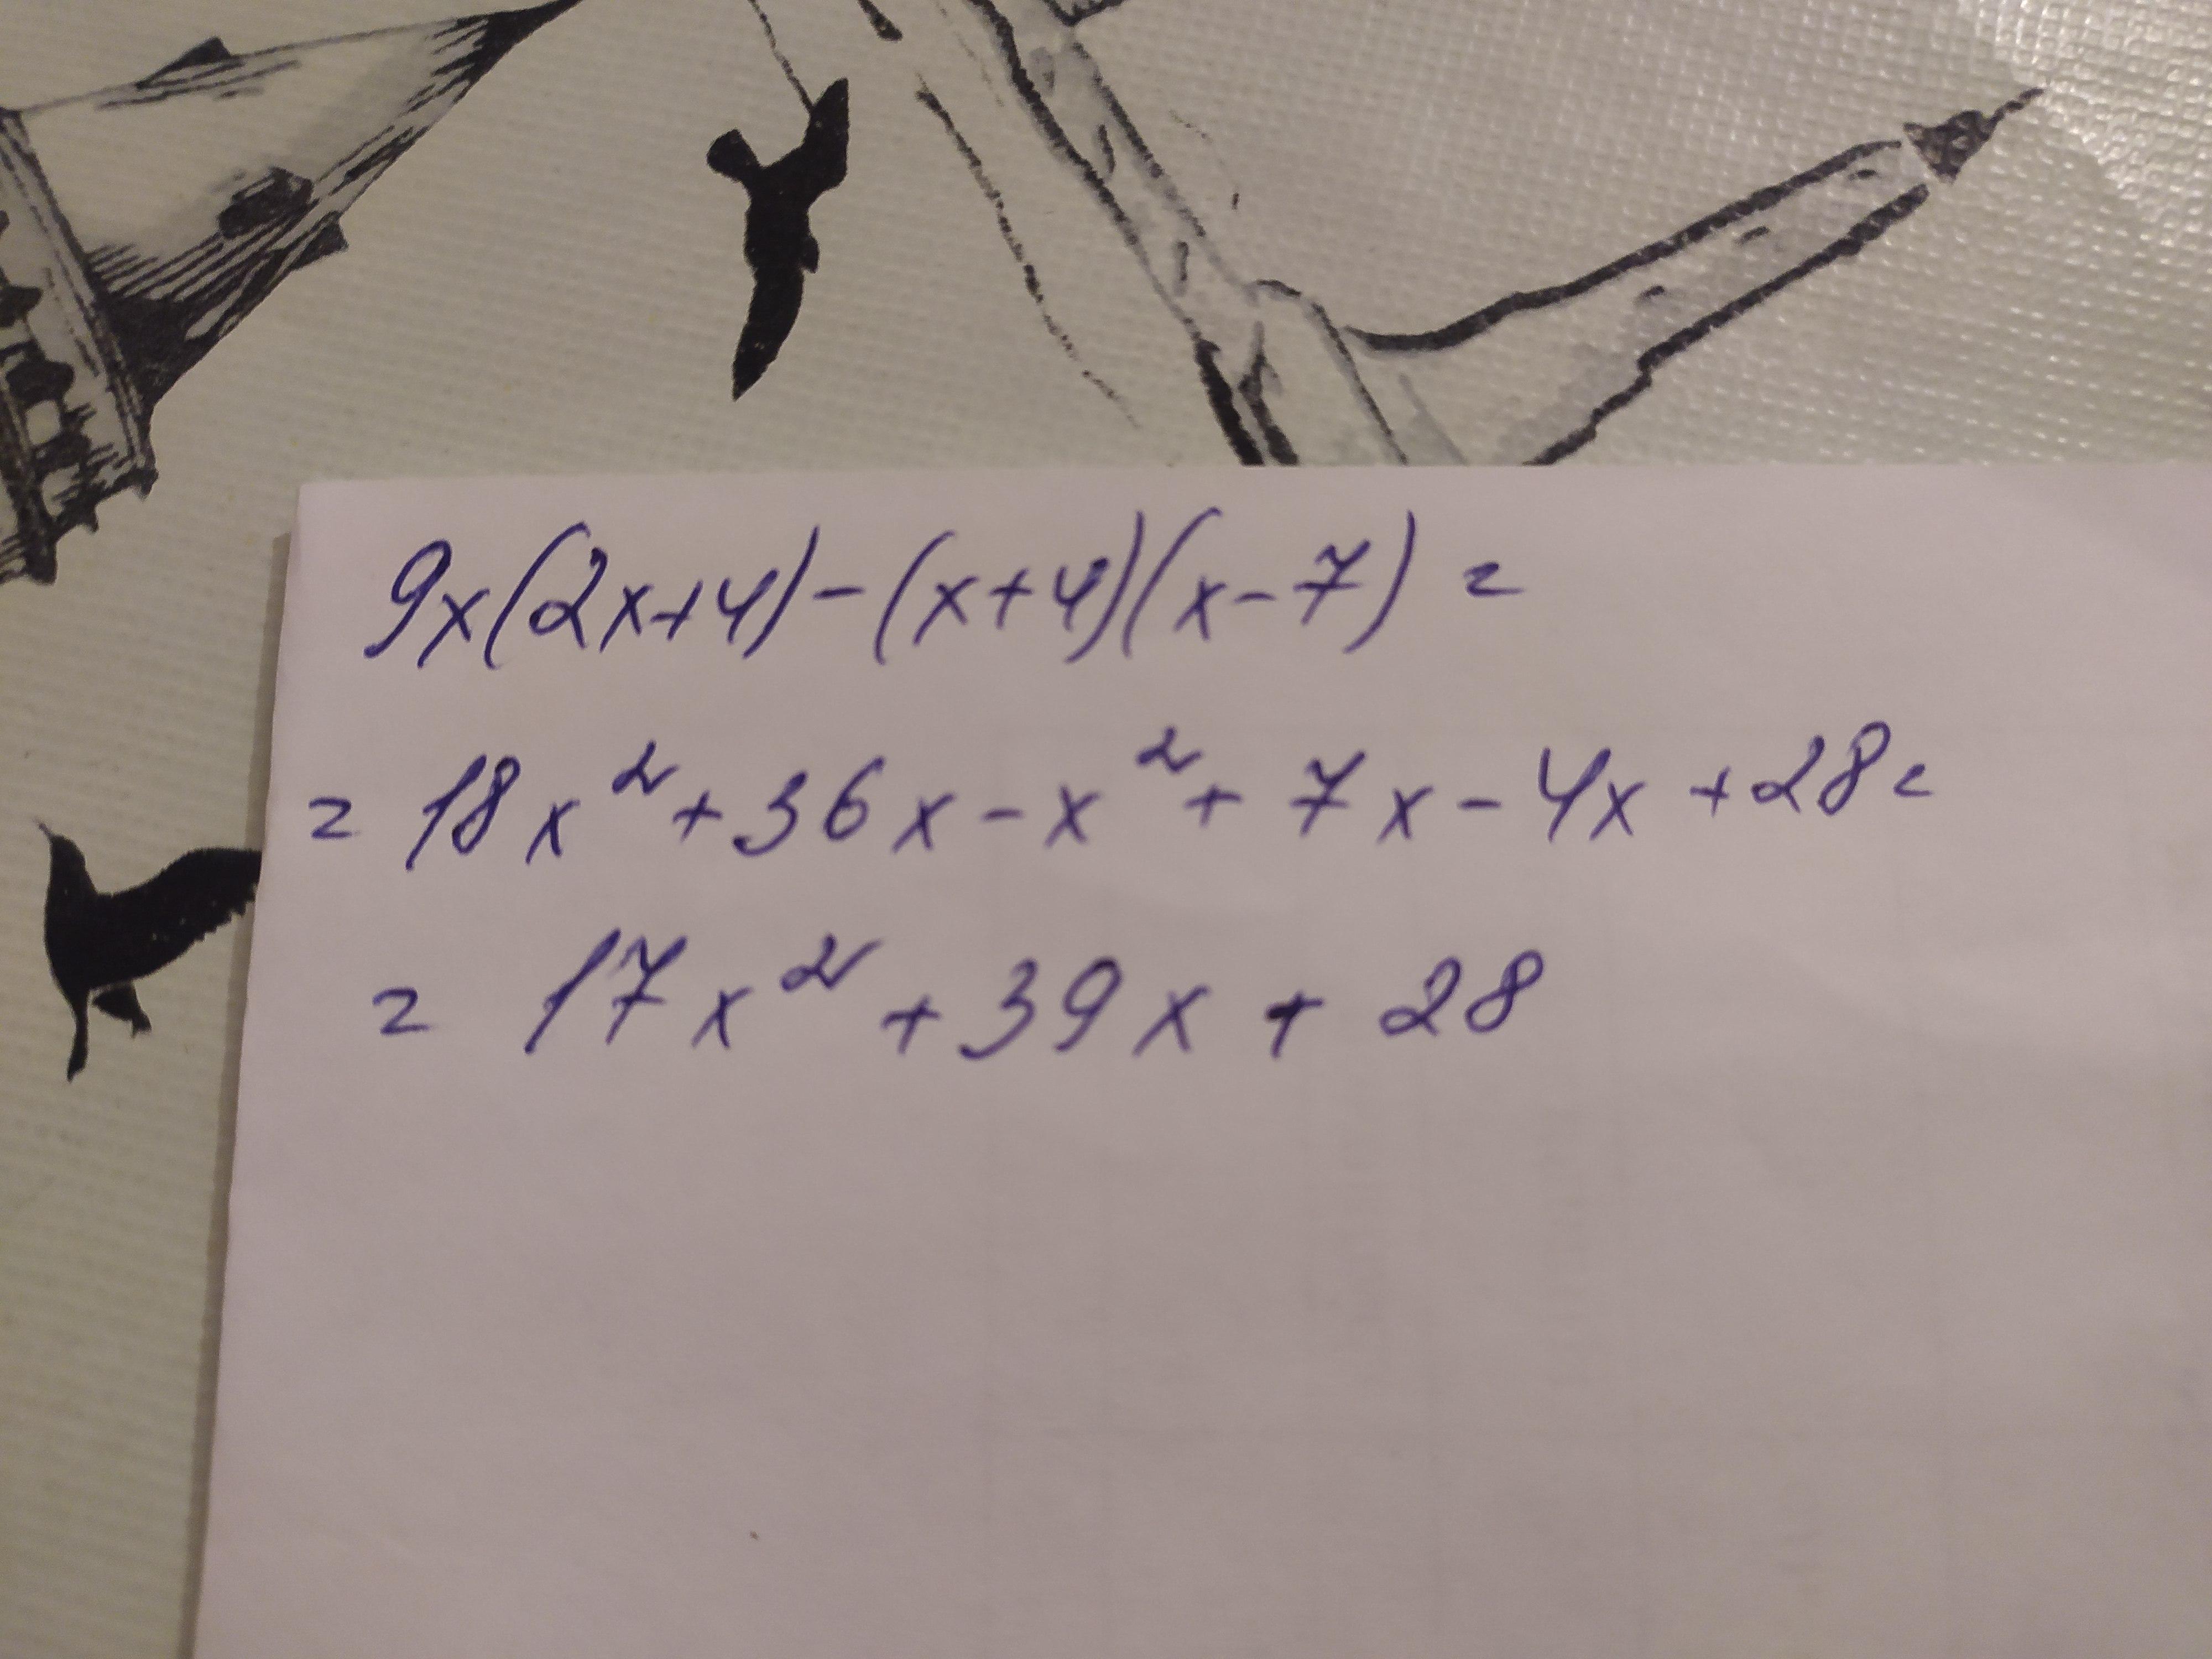 9x(2x+4)-(x+4)(x-7)=
=18x²+36x-x²+7x-4x+28=
=17x²+39x+28